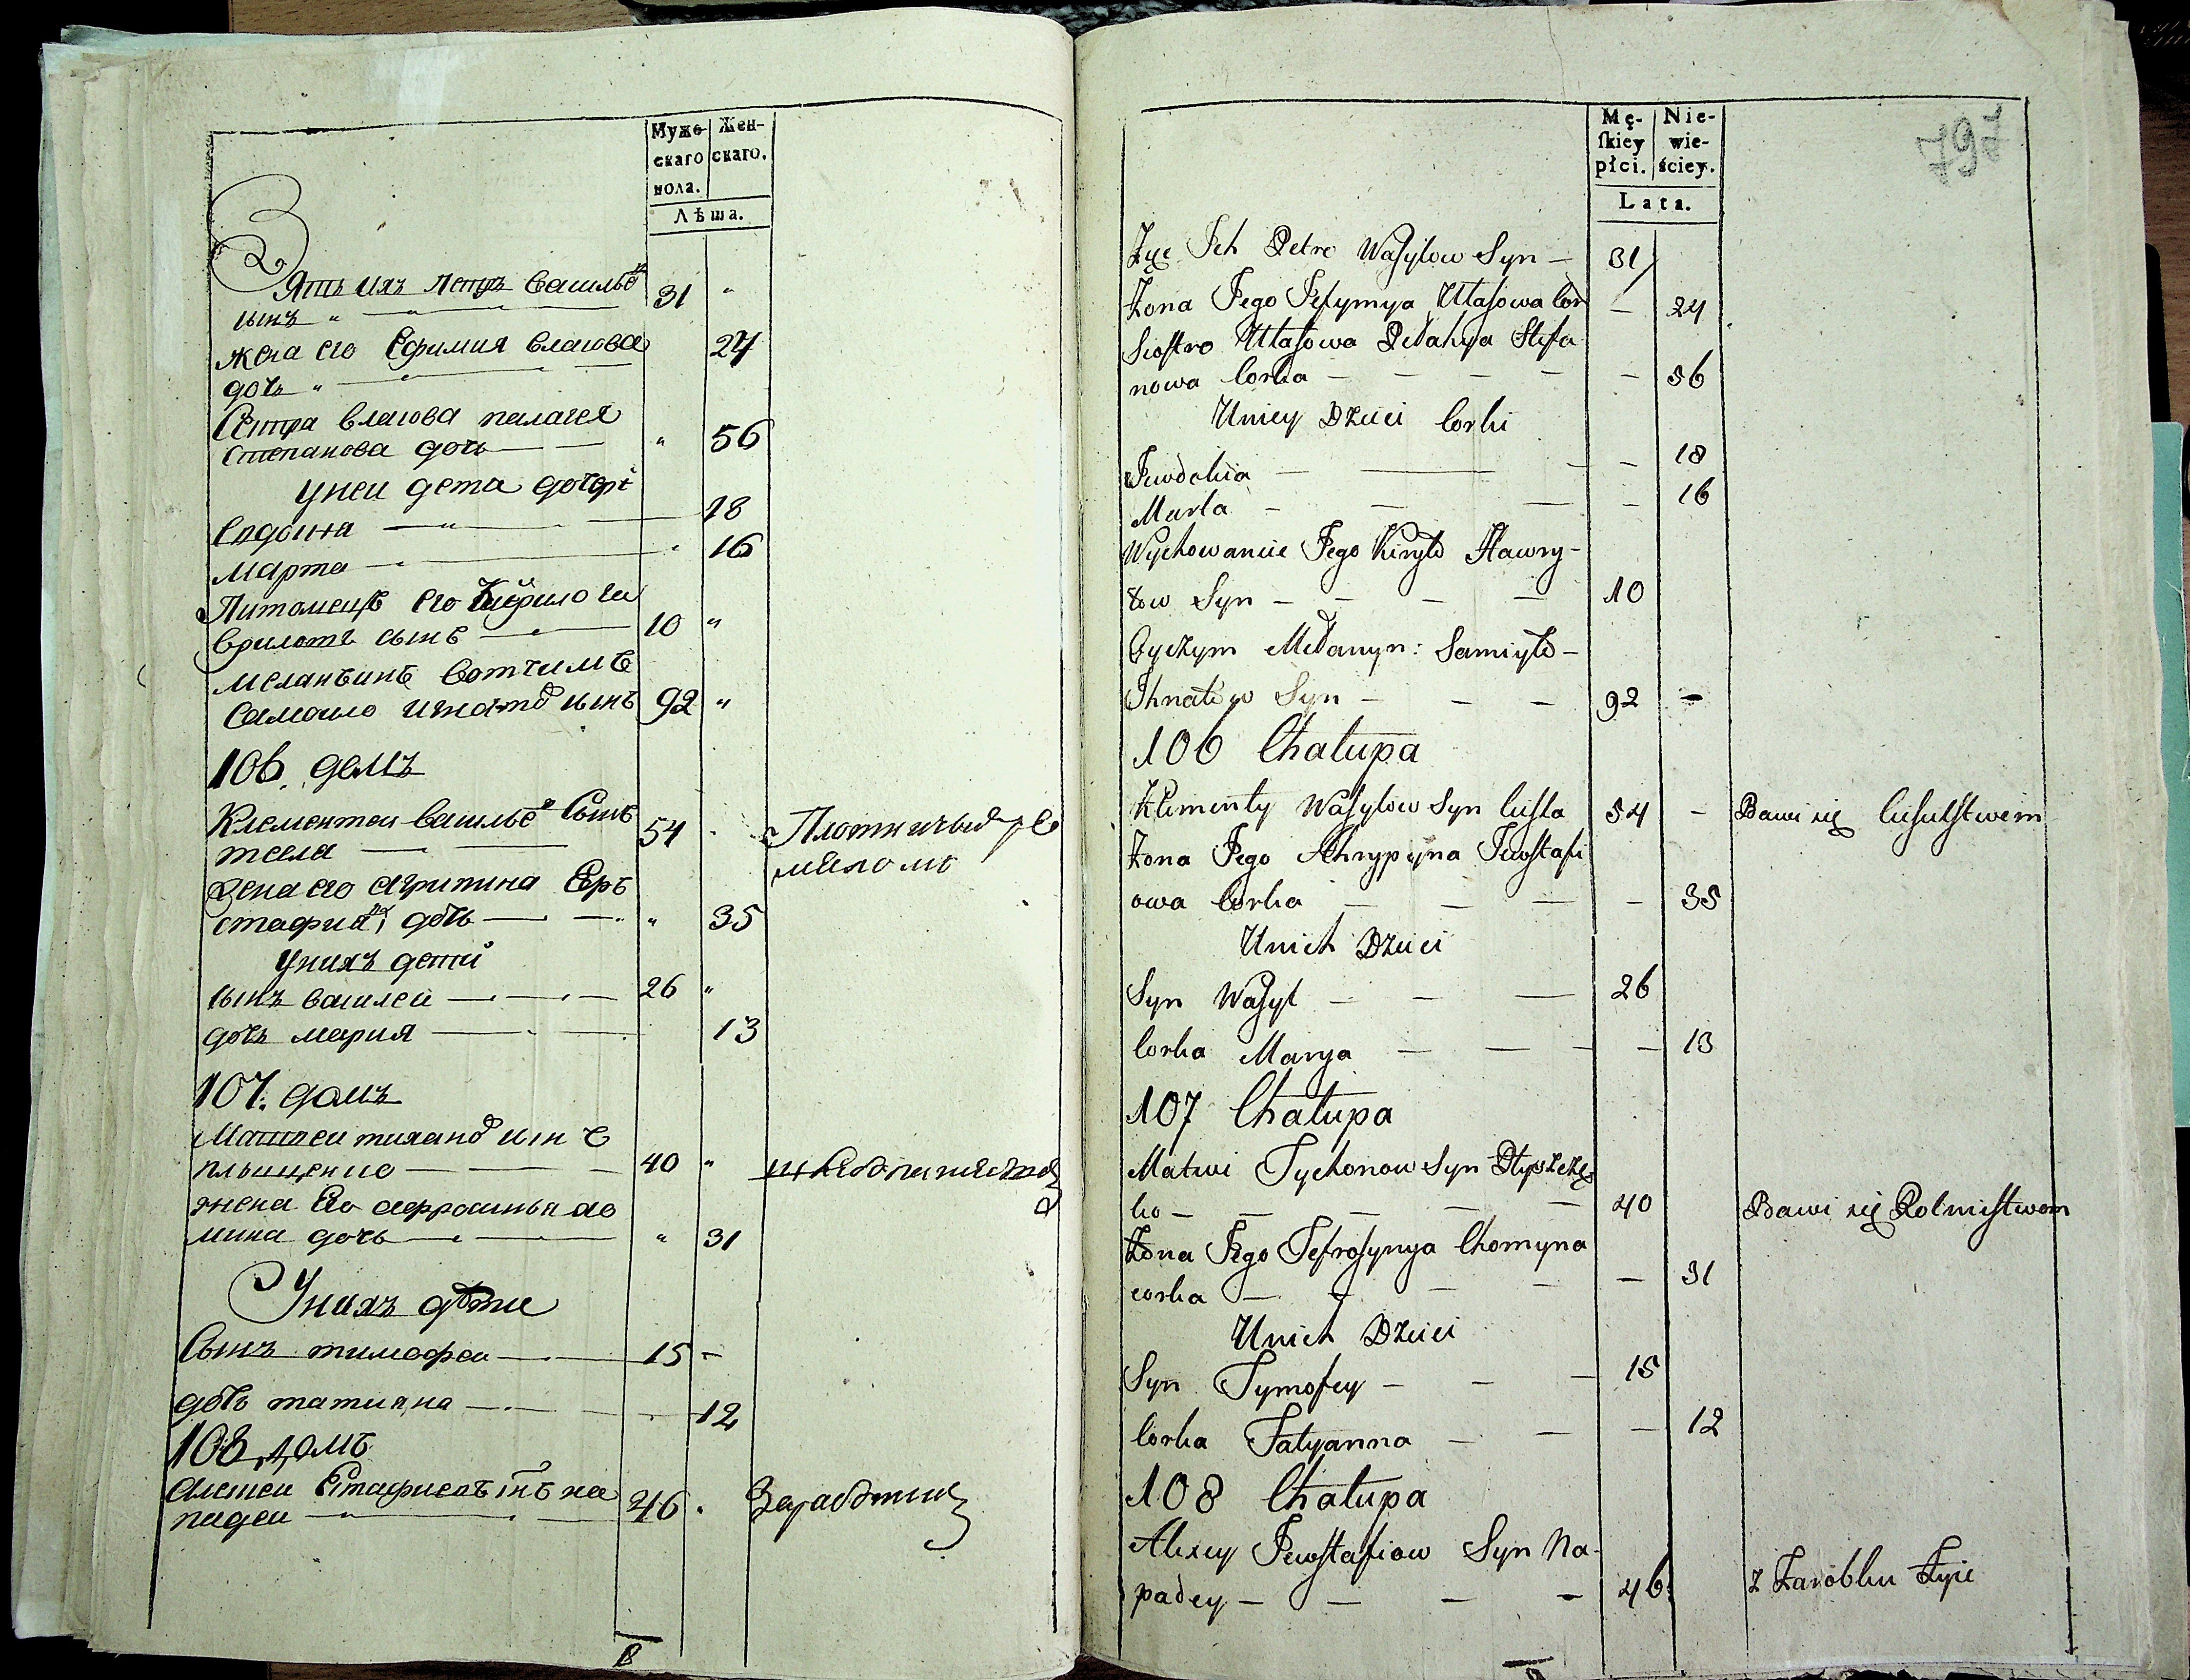 Муже-
скаго
пола.
Жен-
скаго.
Лѣта.
Зять ихъ петръ васильев
сынъ 31 "
жена его Ефимия власова
дочь " 24
Сестра власова палагея
степанова дочь " 56
У неи дети дочери
Евдокия 18
Марта 16
Питомецъ его Кирило га
врилотъ сынъ 10 "
меланьинъ вотчимъ
Самоило игнатов сынъ 92 "
106. домъ
Клементеи васильев Сынъ
тесла 54
Плотничьим ре
меслом
жена его агрипина Евъ
стафиева дочь " 35
У нихъ дети
сынъ василеи 26 "
дочь мария 13
107. домъ
Матвеи тиханов сынъ
плышченко 40 "
жена Его афросинья хо
мина дочь " 31
У нихъ дети
Сынъ тимофеи 15 -
дочь татияна 12
108 домъ
Алексеи Естафиевъ сынъ на
падеи 46
Mę-
ſkiey
płci.
Nie-
wie-
ściey.
Lata.
797
Zyc Jch Petro Wasylow Syn — 31
Zona Jego Jefymya Ułasowa Cor — 24
Siostro Ułasowa Pełahya Stefa
nowa Corka — 56
Uniey Dzieci Corki
Jewdokia — 18
Marta — 16
Wychowanie Jego Kiryło Hawry-
łow Syn — 10
Oyczym Mełanyn: Samiyło —
Jhnatow Syn — 92 —
106 Chałupa
Klimenty Wasylow Syn Ciesla 54 —
Bawi się Ciesielstwem
Zona Jego Ahrypyna Jewstafi
owa Corka — 35
Unich Dzieci
Syn Wasyl — 26
Corka Marya — 13
107 Chałupa
Matwi Tychonow Syn Płyszczę
ko — 40
Bawi się Rolnistwem
Zona Jego Jefrosynya Chomyna
corka — 31
Unich Dzieci
Syn Tymofey — 15
Corka Tatyanna — 12
108 Chałupa
Alexey Jewstafiow Syn Na-
padey — 46
z Zarobku Żyie